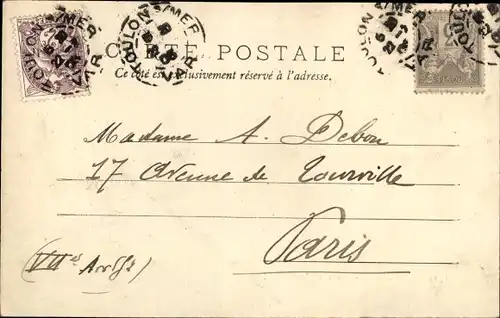 TOULON S/MER
VAR
TOULON S/MER
VAR
TOULON S/MER
VAR
TOULON
VAR
CARTE POSTALE
Ce côté est exclusivement réservé à l'adresse.
Madame A. Debon
17 Avenue de Tourville
Paris
(VIIes Arrdt)